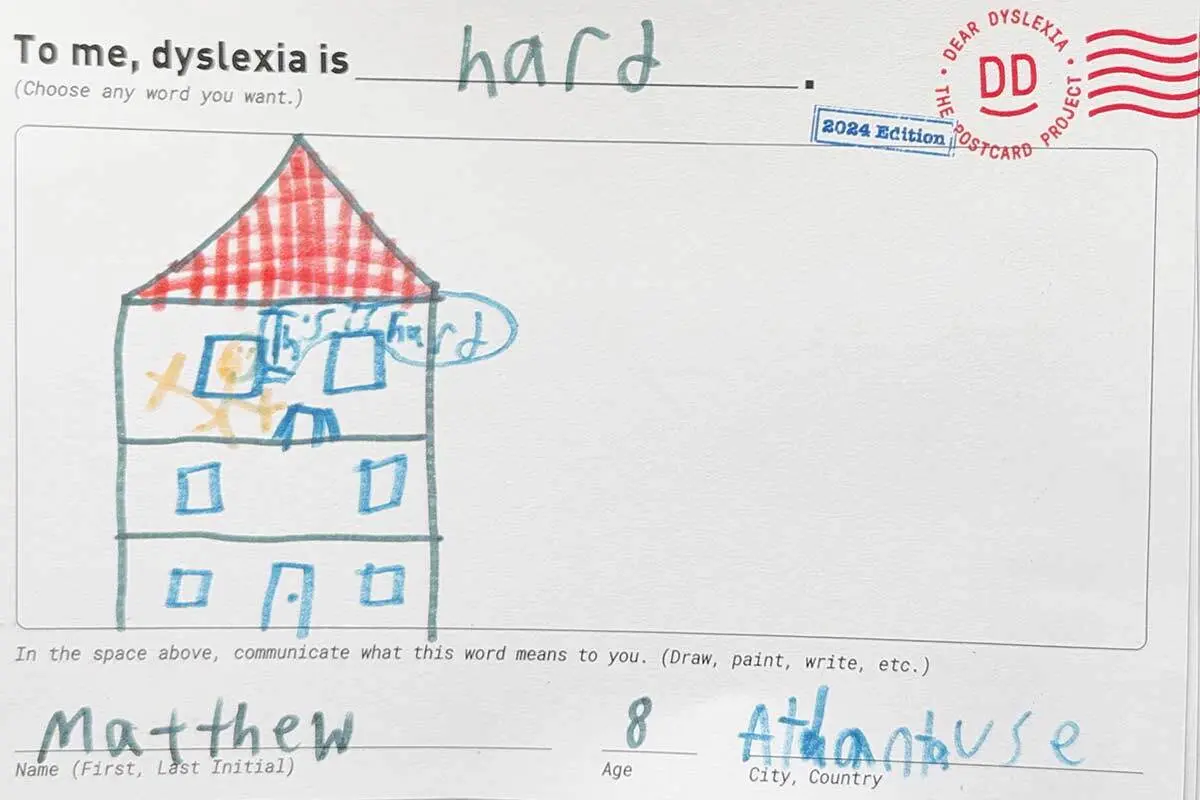 To me, dyslexia is hard.
(Choose any word you want.)
DEAR DYSLEXIA • THE POSTCARD PROJECT •
DD
2024 Edition
This is hard
In the space above, communicate what this word means to you. (Draw, paint, write, etc.)
Matthew 8
Name (First, Last Initial) Age City, Country